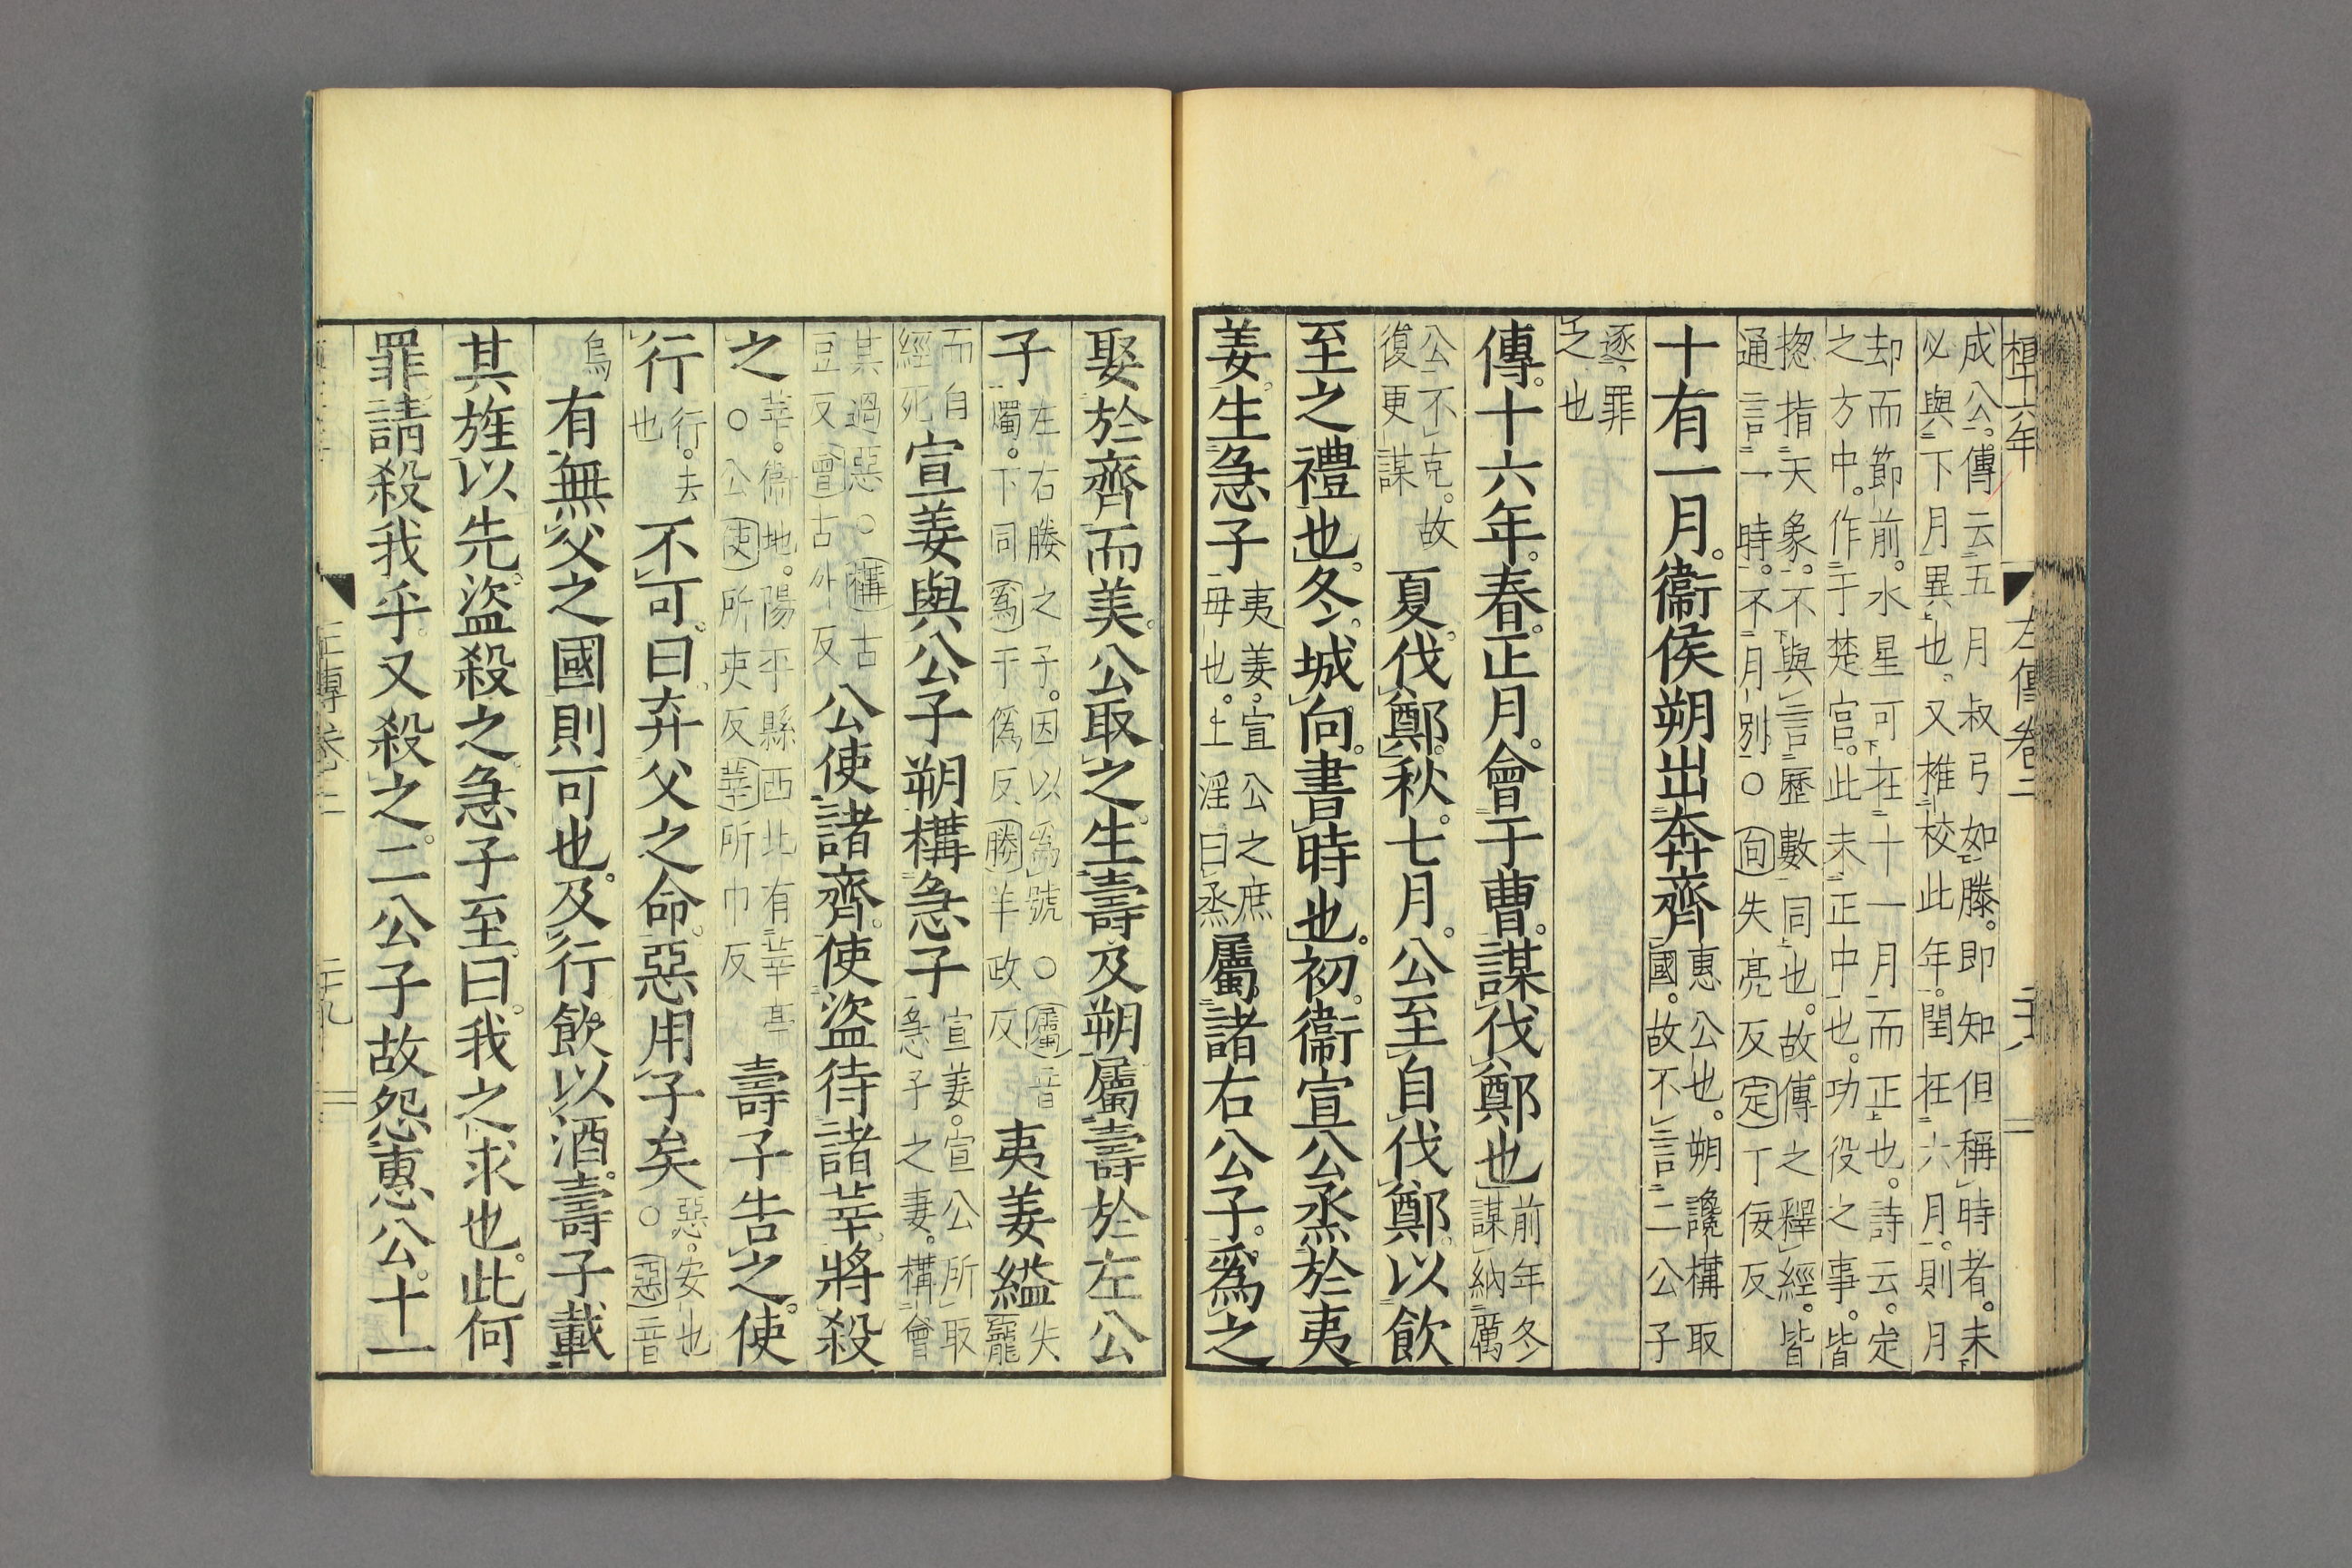 桓十六年 左傳卷二
成公傳云五月叔弓如滕。即知但稱時者。未
必與下月異也又推校此年。閏在六月。則月
却而節前。水星可在十一月而正也。詩云。定
之方中。作于楚宮。此未正中也。功役之事。皆
揔指天象。不與言歷數同也。故傳之釋經。皆
通言一時。不月別○向失亮反定丁佞反
十有一月。衞侯朔出奔齊惠公也。朔讒構取國。故不言二公子
逐罪之也
傳。十六年。春。正月。會于曹。謀伐鄭也前年冬謀納厲
公不克。故復更謀夏。伐鄭。秋。七月。公至自伐鄭。以飲
至之禮也。冬。城向。書時也。初。衞宣公烝於夷
姜。生急子夷姜。宣公之庶母也。上淫曰烝屬諸右公子。爲之
娶於齊而美。公取之。生壽及朔。屬壽於左公
子左右媵之子。因以爲號○屬音燭。下同爲于僞反媵羊政反夷姜縊失寵
而自經死宣姜與公子朔構急子宣姜。宣公所取急子之妻。構會
其過惡○構古豆反會古外反公使諸齊。使盜待諸莘。將殺
之莘。衞地。陽平縣西北有莘亭○公使所吏反莘所巾反壽子告之。使
行行。去也不可。曰。弃父之命。惡用子矣惡。安也○惡音
烏有無父之國則可也。及行。飲以酒。壽子載
其旌以先。盜殺之。急子至。曰。我之求也。此何
罪。請殺我乎。又殺之。二公子故怨惠公。十一
左傳卷二 二十九